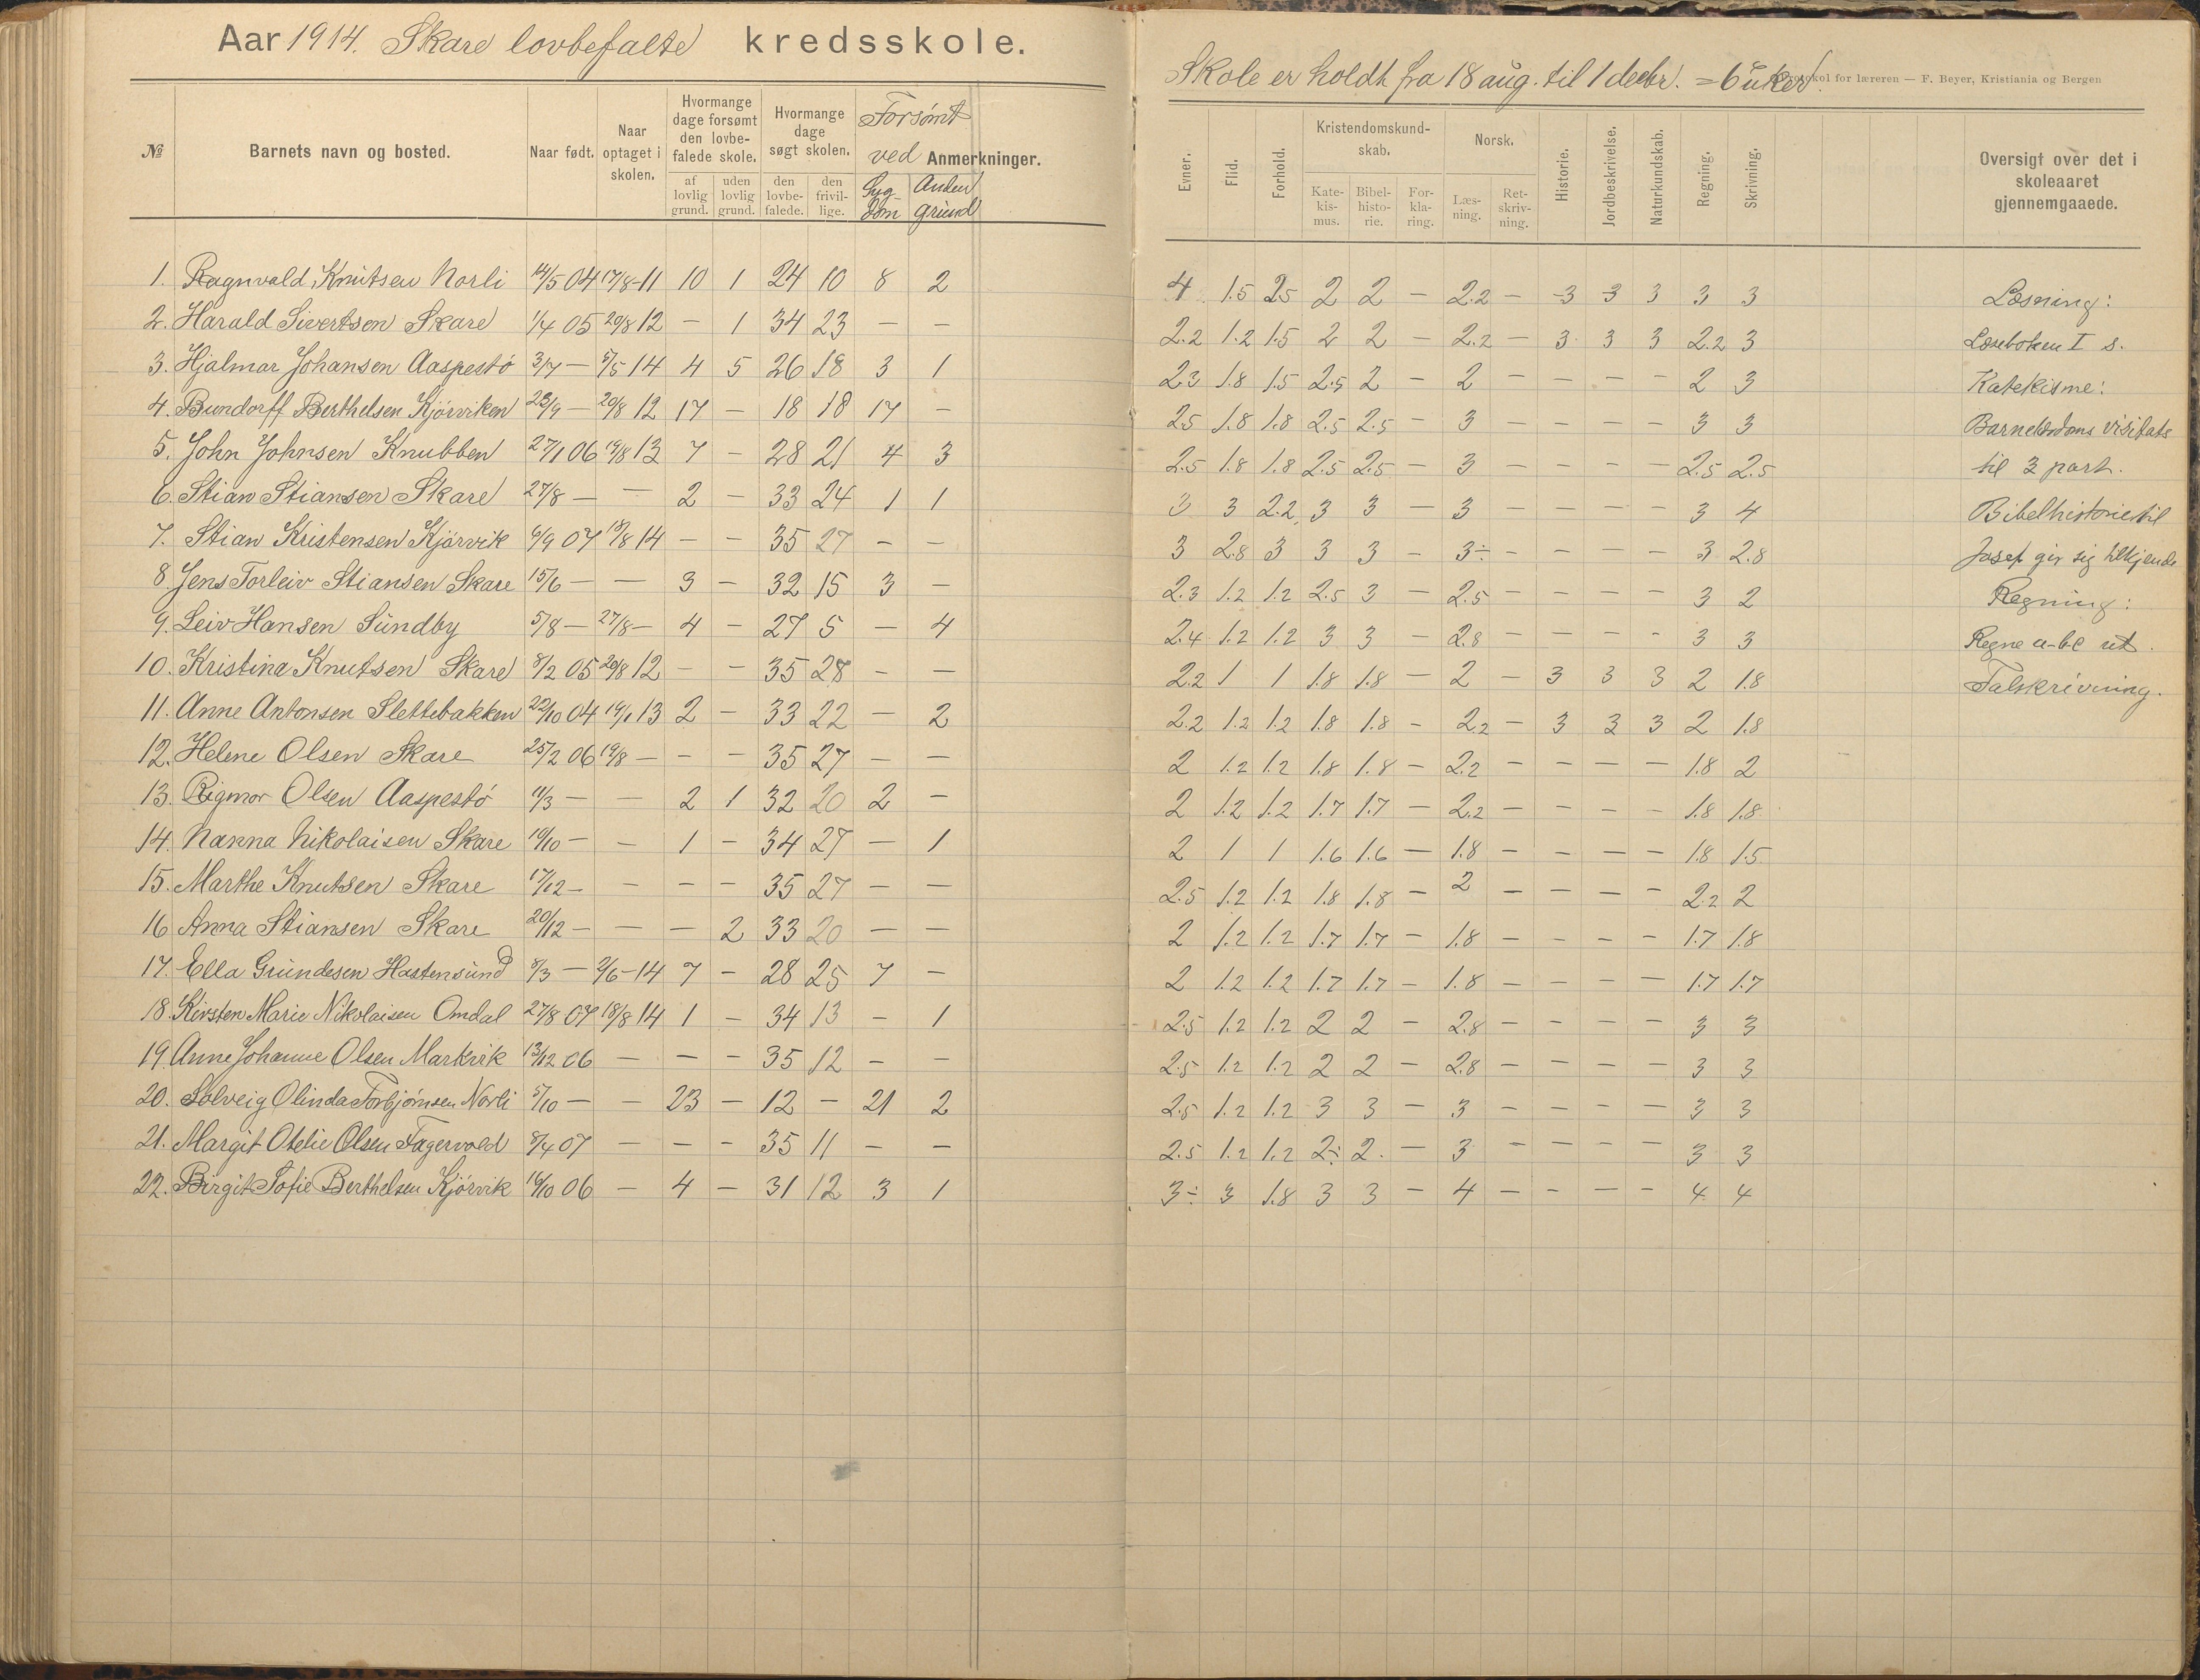 Aar 1914. Skare lovbefalte kredsskole.
№
Barnets navn og bosted.
Naar født.
Naar optaget i skolen.
Hvormange dage forsømt den lovbefalede skole.
af lovlig grund.
uden lovlig grund.
Hvormange dage søgt skolen.
den lovbefalede.
den frivillige.
Forsømt ved
Sygdom
Anden grund
Anmerkninger.
1. Ragnvald Knutsen Norli 14/5 04 17/8-11 10 1 24 10 8 2
2. Harald Sivertsen Skare 1/4 05 20/8 12 — 1 34 23 — —
3. Hjalmar Johansen Aaspestö 3/7 — 5/5 14 4 5 26 18 3 1
4. Bundorff Berthelsen Kjörviken 23/9 — 20/8 12 17 — 18 18 17 —
5. John Johnsen Knubben 27/1 06 19/8 13 7 — 28 21 4 3
6. Stian Stiansen Skare 27/8 — — 2 — 33 24 1 1
7. Stian Kristensen Kjörvik 6/9 07 18/8 14 — — 35 27 — —
8. Jens Torleiv Stiansen Skare 15/6 — — 3 — 32 15 3 —
9. Leiv Hansen Sundby 5/8 — 27/8 — 4 — 27 5 — 4
10. Kristina Knutsen Skare 8/2 05 20/8 12 — — 35 28 — —
11. Anne Antonsen Slettebakken 22/10 04 14/1 13 2 — 33 22 — 2
12. Helene Olsen Skare 25/2 06 19/8 — — — 35 27 — —
13. Rigmor Olsen Aaspestö 11/3 — — 2 1 32 20 2 —
14. Nanna Nikolaisen Skare 10/10 — — 1 — 34 27 — 1
15. Marthe Knutsen Skare 17/12 — — — — 35 27 — —
16 Anna Stiansen Skare 20/12 — — — 2 33 20 — —
17. Ella Gundesen Hastensund 8/3 — 2/6-14 7 — 28 25 7 —
18. Kirsten Marie Nikolaisen Omdal 27/8 07 18/8 14 1 — 34 13 — 1
19. Anne Johanne Olsen Markvik 13/12 06 — — — 35 12 — —
20. Solveig Olinda Torbjørnsen Norli 5/10 — — 23 — 12 — 21 2
21. Margit Otelie Olsen Fagervold 8/4 07 — — — 35 11 — —
22. Birgit Sofie Berthelsen Kjörvik 16/10 06 — 4 — 31 12 3 1
Skole er holdt fra 18 aug. til 1 decbr. = 6 uker.
kol for læreren — F. Beyer, Kristiania og Bergen
Evner.
Flid.
Forhold.
Kristendomskundskab.
Katekismus.
Bibelhistorie.
Forklaring.
Norsk.
Læsning.
Retskrivning.
Historie.
Jordbeskrivelse.
Naturkundskab.
Regning.
Skrivning.
Oversigt over det i skoleaaret gjennemgaaede.
4 1.5 2.5 2 2 — 2.2 — 3 3 3 3 3 Læsning:
2.2 1.2 1.5 2 2 — 2.2 — 3 3 3 2.2 3 Læseboken I s.
2.3 1.8 1.5 2.5 2 — 2 — — — — 2 3 Katekisme:
2.5 1.8 1.8 2.5 2.5 — 3 — — — — 3 3 Barnelærdoms visitats
2.5 1.8 1.8 2.5 2.5 — 3 — — — — 2.5 2.5 til 3 part.
3 3 2.2 3 3 — 3 — — — — 3 4 Bibelhistorie til
3 2.8 3 3 3 — 3÷ — — — — 3 2.8 Josef gir sig tilkjende
2.3 1.2 1.2 2.5 3 — 2.5 — — — — 3 2 Regning:
2.4 1.2 1.2 3 3 — 2.8 — — — — 3 3 Regne a-be ut.
2.2 1 1 1.8 1.8 — 2 — 3 3 3 2 1.8 Talskrivning.
2.2 1.2 1.2 1.8 1.8 — 2.2 — 3 3 3 2 1.8
2 1.2 1.2 1.8 1.8 — 2.2 — — — — 1.8 2
2 1.2 1.2 1.7 1.7 — 2.2 — — — — 1.8 1.8
2 1 1 1.6 1.6 — 1.8 — — — — 1.8 1.5
2.5 1.2 1.2 1.8 1.8 — 2 — — — — 2.2 2
2 1.2 1.2 1.7 1.7 — 1.8 — — — — 1.7 1.8
2 1.2 1.2 1.7 1.7 — 1.8 — — — — 1.7 1.7
2.5 1.2 1.2 2 2 — 2.8 — — — — 3 3
2.5 1.2 1.2 2 2 — 2.8 — — — — 3 3
2.5 1.2 1.2 3 3 — 3 — — — — 3 3
2.5 1.2 1.2 2÷ 2. — 3 — — — — 3 3
3÷ 3 1.8 3 3 — 4 — — — — 4 4